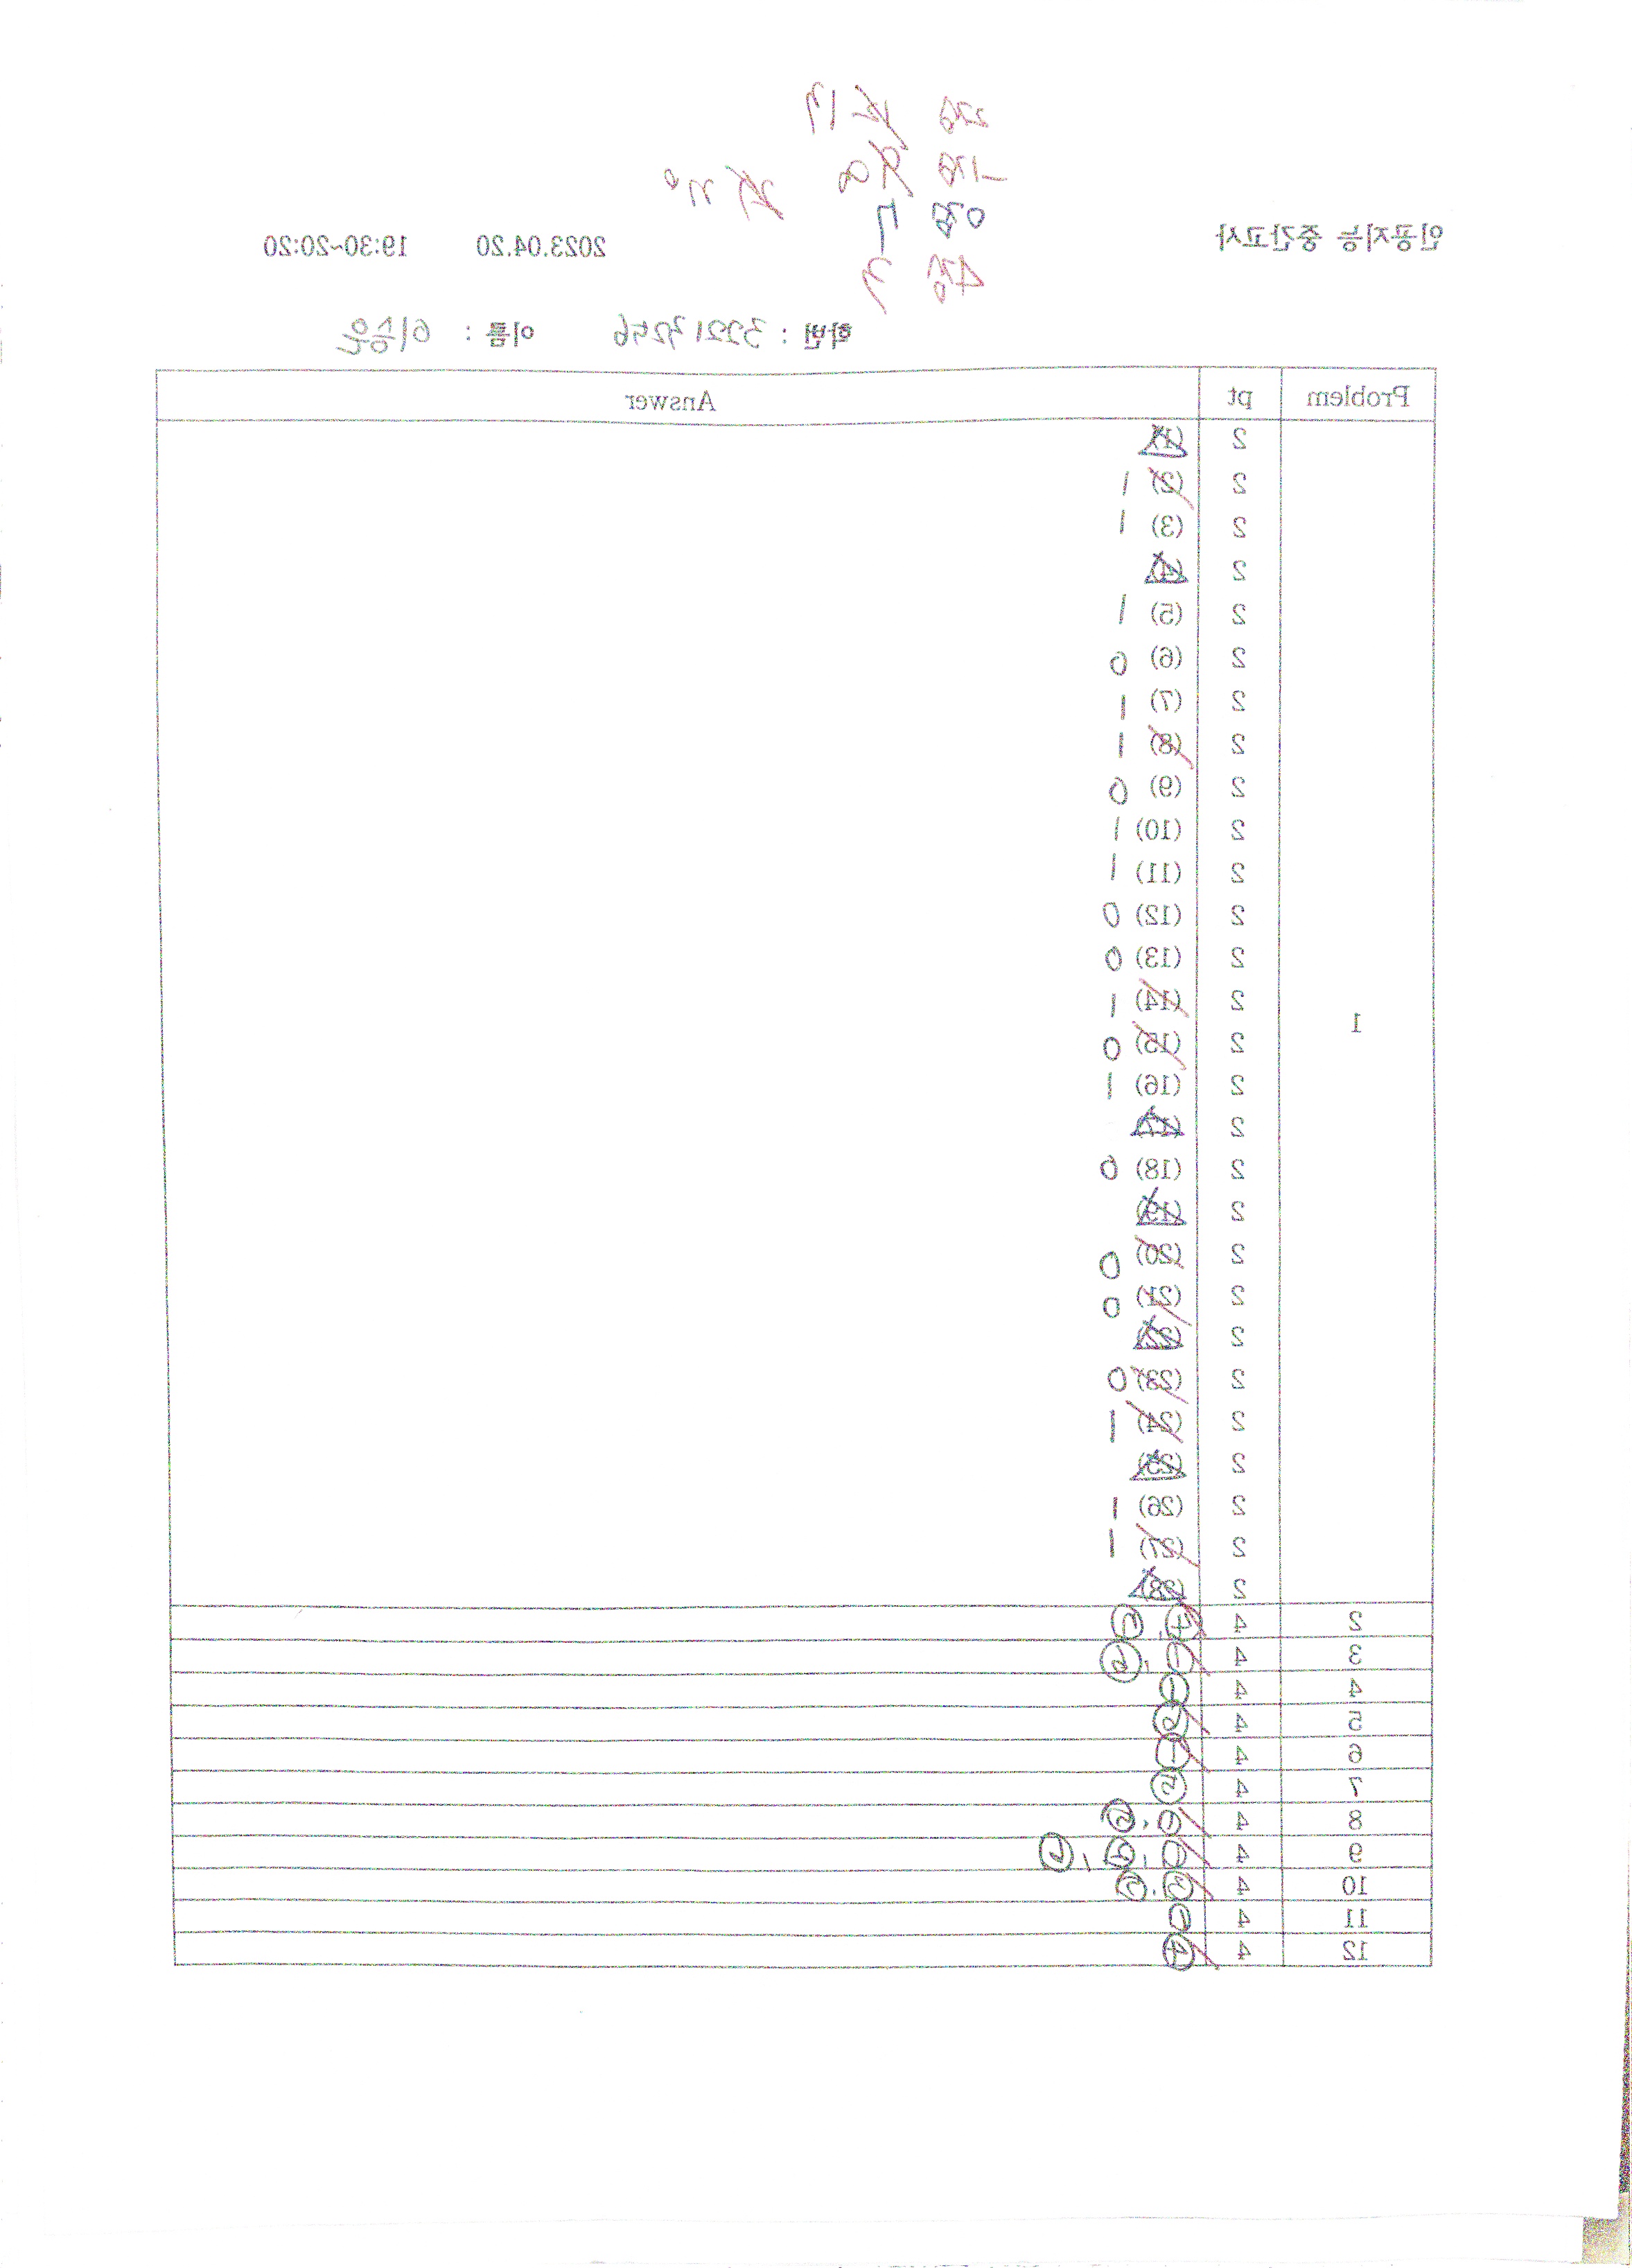 2점
-1점
0점 7
4점 3
인공지능 중간고사 2023.04.20 19:30~20:20
학번 : 이름 : 이승윤
Problem pt Answer
1
2 (1)
2 (2) 1
2 (3) 1
2 (4)
2 (5) 1
2 (6) 0
2 (7) 1
2 (8) 1
2 (9) 0
2 (10) 1
2 (11) 1
2 (12) 0
2 (13) 0
2 (14) 1
2 (15) 0
2 (16) 1
2 (17)
2 (18) 0
2 (19)
2 (20) 0
2 (21) 0
2 (22)
2 (23) 0
2 (24) 1
2 (25)
2 (26) 1
2 (27) 1
2 (28)
2 4 ④,
3 4 ①,
4 4 ①
5 4
6 4 ①
7 4
8 4 ①,
9 4 ①,
10 4
11 4 ①
12 4 ④